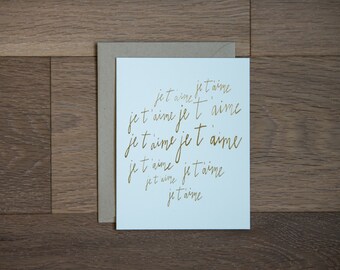 je t'aime je t'aime
je t'aime je t'aime
je t'aime je t'aime
je t'aime je t'aime
je t'aime
je t'aime